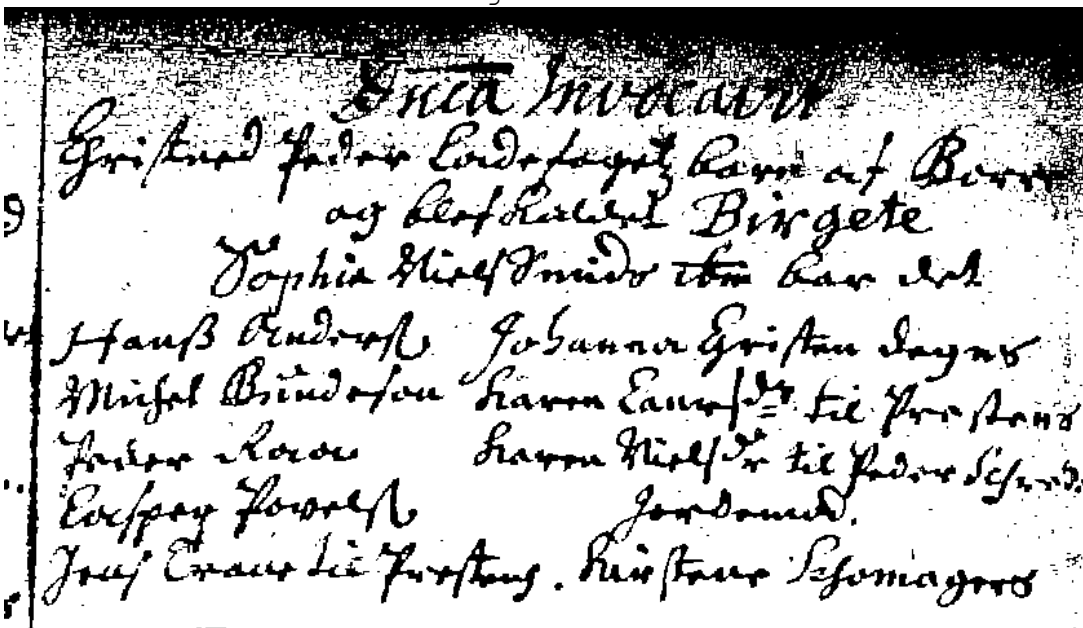 Dnica Invocavit
Christned Peder Ladefogetz barn af Borre
og blef kaldet Birgete
Sophie Niels Smids ibm bar det
Hanß Anderss. Johanna Christen degns
Michel Bundeson Karen Laursdr til Prestens
Peder Karen Nielsdr til Peder Schred
Casper Povelss. Jordemod.
Jens Trane til Prestens. Kirstene Schomagers